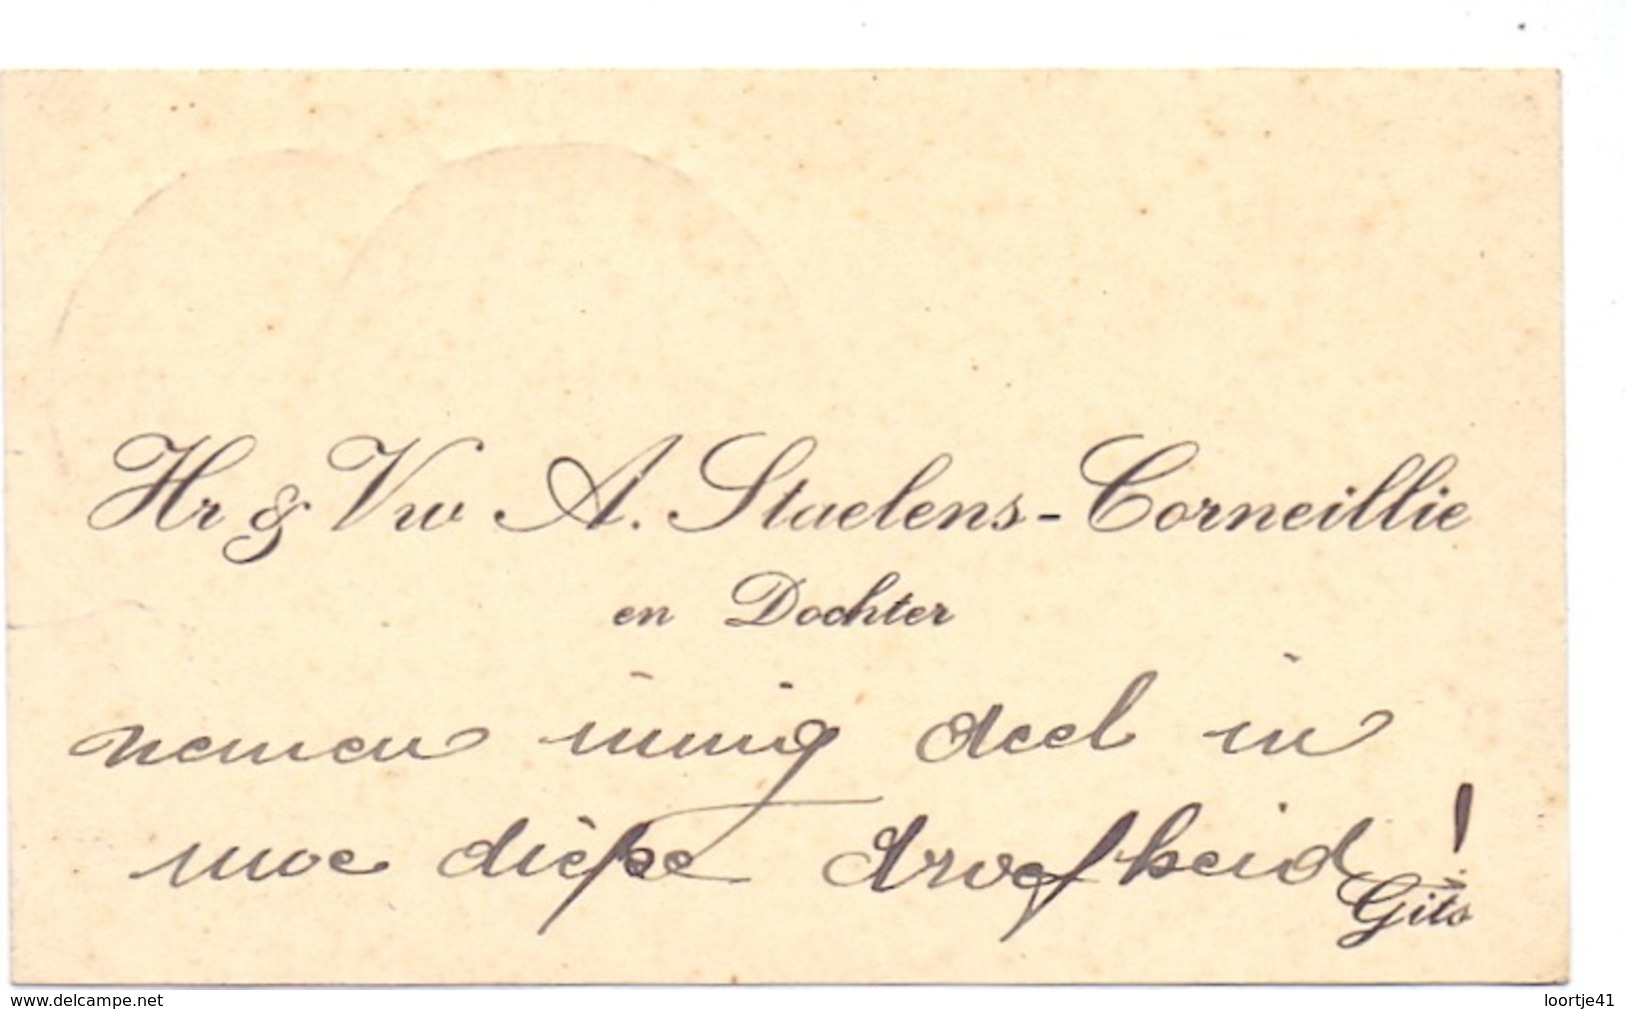 Hr & Vw A. Staelens-Corneillie
en Dochter
nemen innig deel in
uwe diepe droefheid!
Gits
www.delcampe.net
loortje41